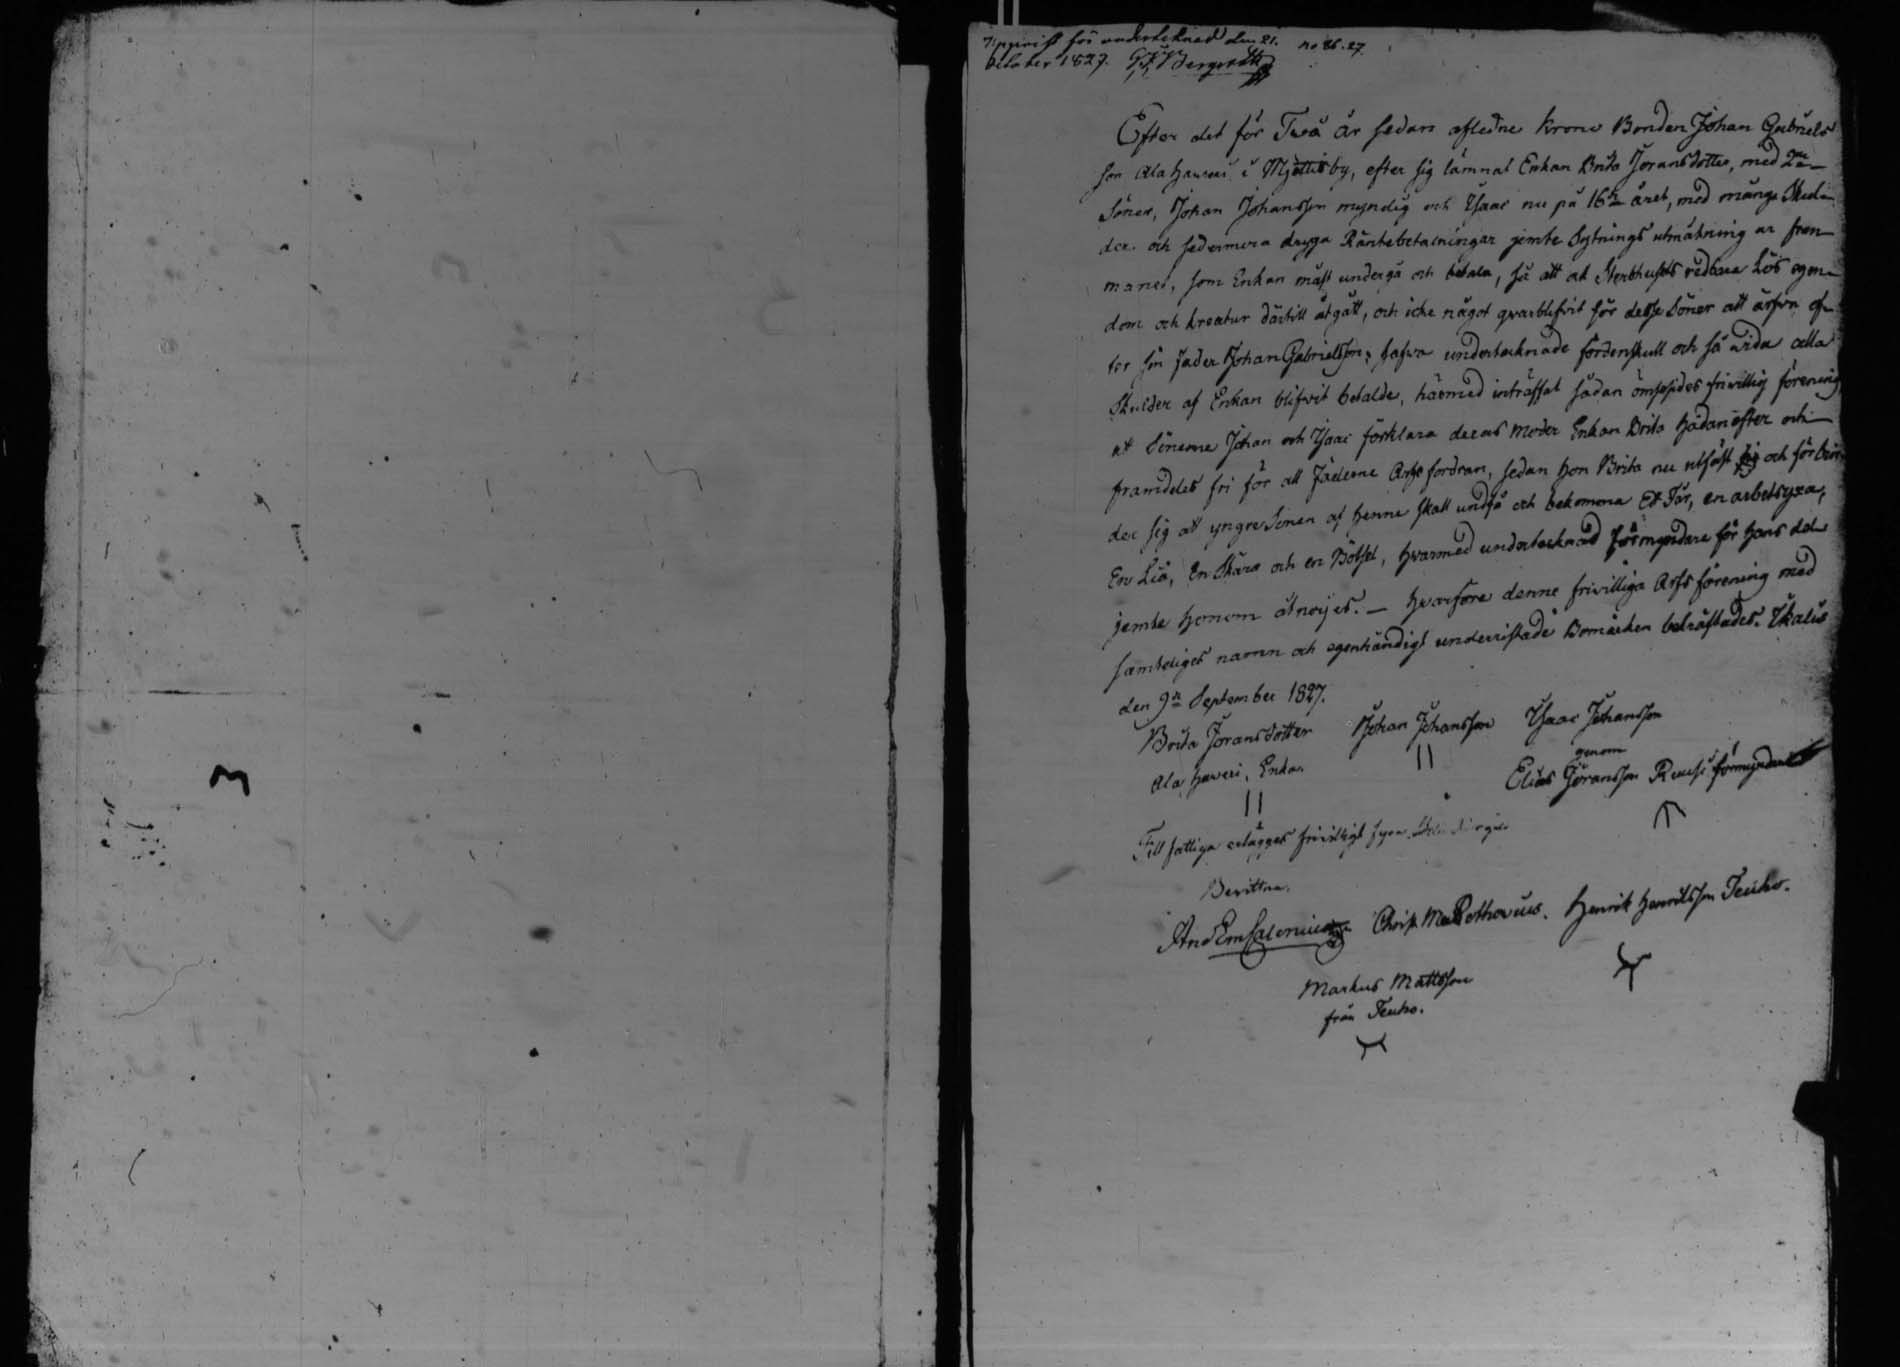 Uppvist för undertecknad den 21. no 26.27.
October 1827. Bergroth
Efter det för Två år sedan afledne Krono Bonden Johan Gabriels
son Ala Haveri i Mjettisby, efter sig lämnat Enkan Brita Jöransdotter, med 2ne
Söner, Johan Johansson myndig och Isaac nu på 16de året, med många Skul-
der och sedermera dryga Räntebetalningar jemte Sytnings utmätning av från
manes, som Enkan måst undergå och betala, så att alt Sterbhusets redbara Lös egen-
dom och kreatur därtill åtgått, och icke något qvarblifvit för desse Söner att ärfva ef-
ter sin fader Johan Gabrielsson; hafva undertecknade fördenskull och så vida alla
Skulder af Enkan blifvit betalde, härmed inträffat sådan ömsesides frivillig förening,
at Sönerne Johan och Isaac förklara deras moder Enkan Brita hädanefter och
framdeles fri för all Fäderne Arfs fordran, sedan hon Brita nu utfäst sig och förbin-
der sig att yngre Sonen af henne skall undfå och bekomma Et Får, en arbetsyxa,
En Lia, En Skära och en Bötsel, hvarmed undertecknad förmyndare för hans del
jemte honom åtnöijes. — Hvarföre denne frivilliga Arfs förening med
samteliges namn och egenhändigt underristade Bomärken bekräftades. Ikalis
den 9de September 1827.
Brita Jöransdotter Johan Johansson Isaac Johansson
Ala Haveri, Enka. genom
Elias Göransson förmyndare
Till fattiga erlägges frivilligt fyra
Bevittna.
And Em Salenius Christ. Mat Pothovius. Henrik Henriksson Teuho.
Markus Mattsson
från Teuho.